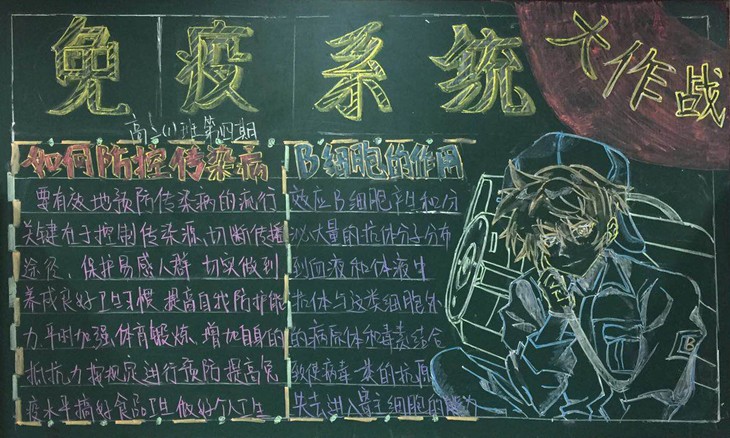 免疫系统
大作战
高二(1)班第四期
如何防控传染病
要有效地预防传染病的流行
关键在于控制传染源、切断传播
途径、保护易感人群 切实做到
养成良好卫生习惯 提高自我防护能
力平时加强体育锻炼、增加自身的
抵抗力按规定进行预防提高免
疫水平搞好食品卫生做好个人卫生
B细胞的作用
效应B细胞产生和分
泌大量的抗体分子分布
到血液和体液中
抗体与这类细胞外
的病原体和毒素结合
致使病毒一类的抗原
失去进入寄主细胞的能力
B